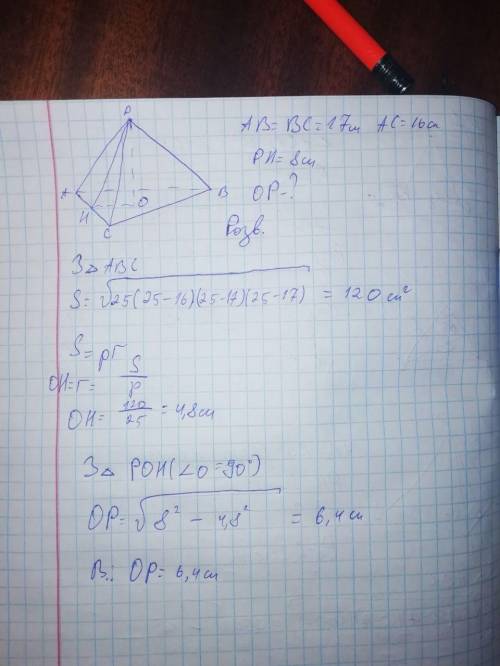 P
AB = BC = 17см AC = 16см
PH = 8см
A
B
O
OP-?
H
C
Розв.
З △ ABC
S = √25(25-16)(25-17)(25-17) = 120 см²
S = pr
OH = r = S/p
OH = 120/25 = 4,8 см
З △ POH (∠O = 90°)
OP = √8² - 4,8² = 6,4 см
В.: OP = 6,4 см